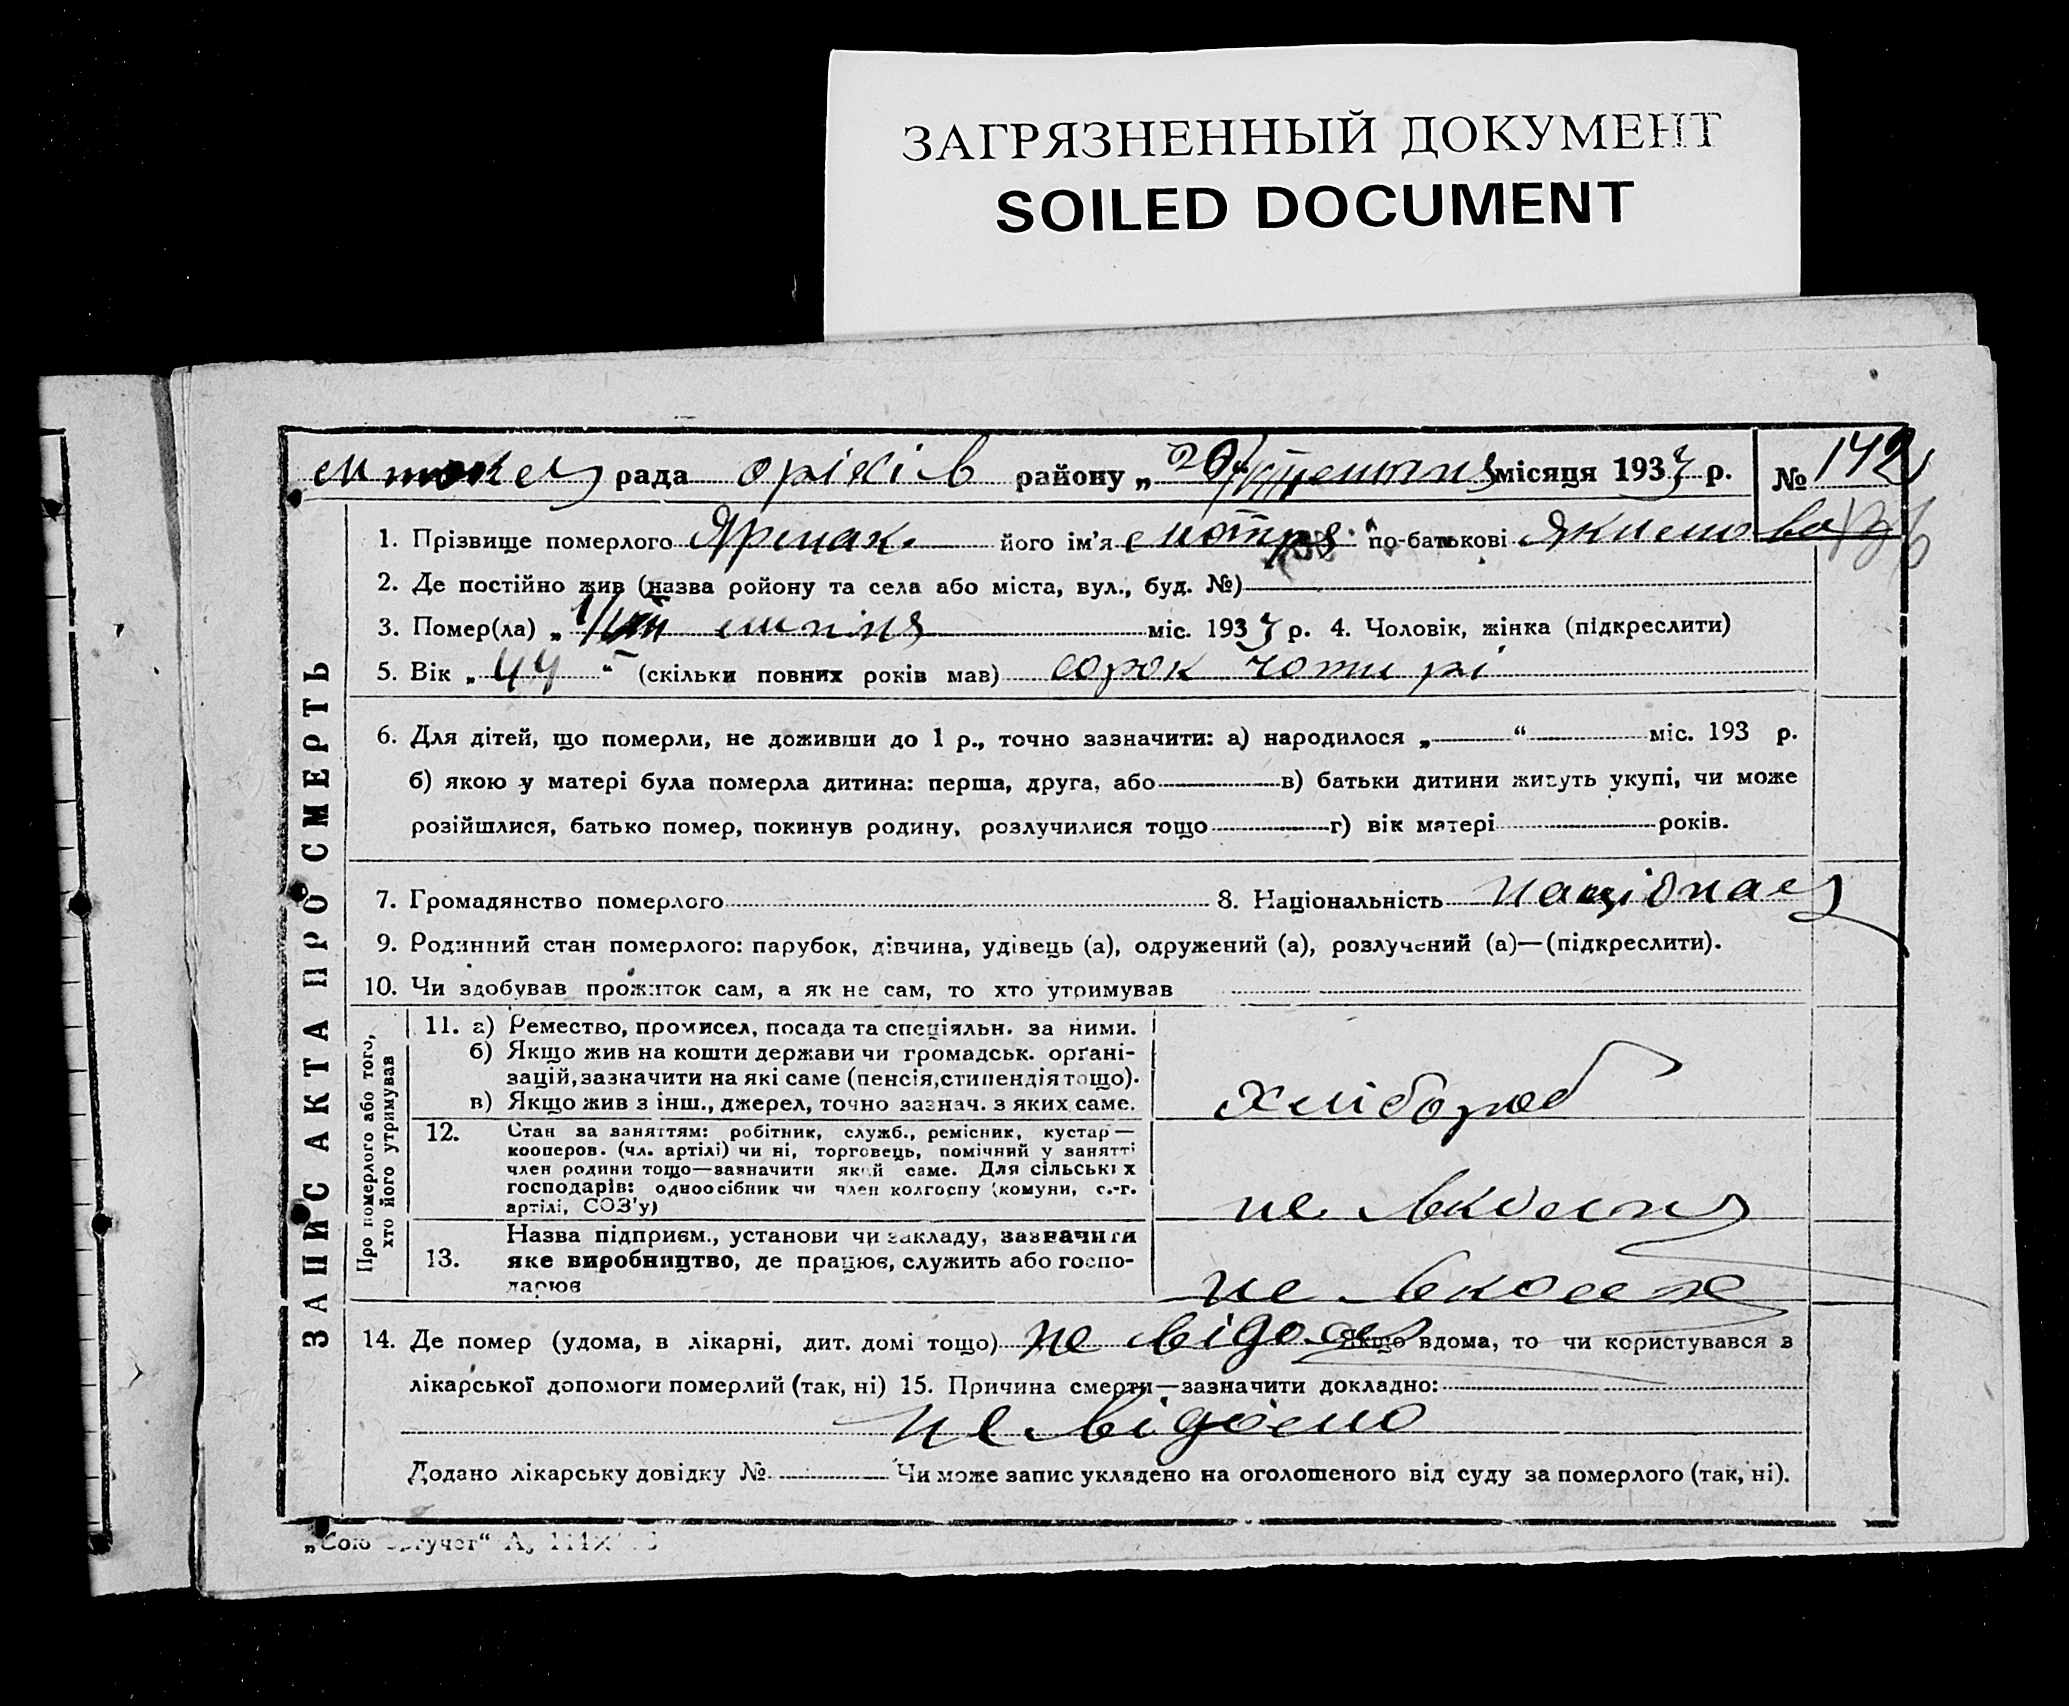 ЗАГРЯЗНЕННЫЙ ДОКУМЕНТ
SOILED DOCUMENT
рада оріхів району „ 20/ місяця 1933 р. № 142
1. Прізвище померлого Ярмак його ім'я мотря по-батькові Якимова
2. Де постійно жив (назва ройону та села або міста, вул., буд. №)
3. Помер(ла) „ липня міс. 1933 р. 4. Чоловік, жінка (підкреслити)
5. Вік „ 44 “ (скільки повних років мав) сорок чотирі
6. Для дітей, що померли, не доживши до 1 р., точно зазначити: а) народилося „ “ міс. 193 р.
б) якою у матері була померла дитина: перша, друга, або в) батьки дитини живуть укупі, чи може
розійшлися, батько помер, покинув родину, розлучилися тощо г) вік матері років.
7. Громадянство померлого 8. Національність
9. Родинний стан померлого: парубок, дівчина, удівець (а), одружений (а), розлучений (а)—(підкреслити).
10. Чи здобував прожиток сам, а як не сам, то хто утримував
ЗАПИС АКТА ПРО СМЕРТЬ
Про померлого або того,
хто його утримував
11. а) Ремество, промисел, посада та спеціяльн. за ними.
б) Якщо жив на кошти держави чи громадськ. орґані-
зацій, зазначити на які саме (пенсія, стипендія тощо).
в) Якщо жив з інш., джерел, точно зазнач. з яких саме.
хлібороб
12. Стан за заняттям: робітник, служб., ремісник, кустар—
кооперов. (чл. артілі) чи ні, торговець, помічний у занятті
член родини тощо—зазначити який саме. Для сільських
господарів: одноосібник чи член колгоспу (комуни, с.-г.
артілі, СОЗ'у)
не
13. Назва підприєм., установи чи закладу, зазначити
яке виробництво, де працює, служить або госпо-
дарює
не
14. Де помер (удома, в лікарні, дит. домі тощо) не Якщо вдома, то чи користувався з
лікарської допомоги померлий (так, ні) 15. Причина смерти—зазначити докладно:
не відомо
Додано лікарську довідку №. Чи може запис укладено на оголошеного від суду за померлого (так, ні).